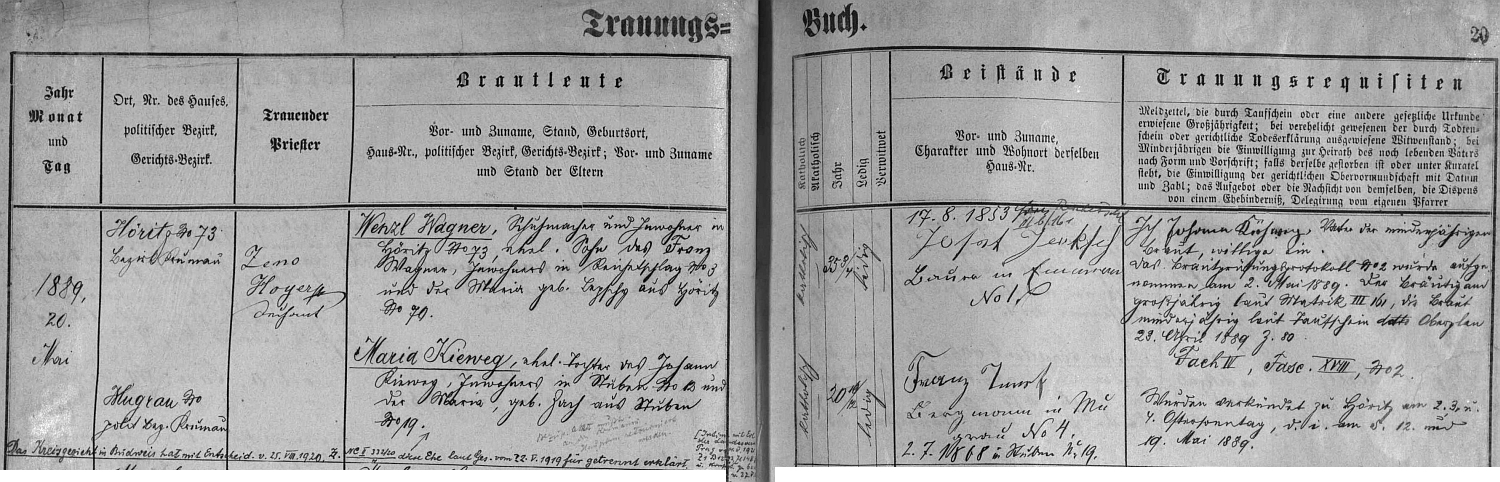 Trauungs=
Buch.
20
Jahr
Monat
und
Tag
Ort, Nr. des Hauses,
politischer Bezirk,
Gerichts-Bezirk.
Trauender
Priester
Brautleute
Vor- und Zuname, Stand, Geburtsort,
Haus-Nr., politischer Bezirk, Gerichts-Bezirk; Vor- und Zuname
und Stand der Eltern
Katholisch
Akatholisch
Jahr
Ledig
Verwitwet
Beistände
Vor- und Zuname,
Charakter und Wohnort derselben
Haus-Nr.
Trauungsrequisiten
Meldzettel, die durch Taufschein oder eine andere gesetzliche Urkunde
erwiesene Großjährigkeit; bei verehelicht gewesenen der durch Todten-
schein oder gerichtliche Todeserklärung ausgewiesene Witwenstand; bei
Minderjährigen die Einwilligung zur Heirath des noch lebenden Vaters
nach Form und Vorschrift; falls derselbe gestorben ist oder unter Kuratel
steht, die Einwilligung der gerichtlichen Obervormundschaft mit Datum
und Zahl; das Aufgebot oder die Nachsicht von demselben, die Dispens
von einem Ehehinderniß, Delegirung vom eigenen Pfarrer
1889,
20.
Mai
Höritz No 73
Bezirk Krumau
Mugrau No
polit. Bez. Krumau
Zeno
Hoyer
Dechant
Wenzl Wagner, Schuhmacher und Inwohner in
Höritz No 73, ehel. Sohn des Franz
Wagner, Inwohners in No 3
und der Maria geb. aus Höritz
No 70.
Maria Kieweg, ehel. Tochter des Johann
Kieweg, Inwohners in Stuben No und
der Maria, geb. Zach aus Stuben
No 19.
Das Kreisgericht in Budweis hat mit Entscheid. v. 25. VIII. 1920, Z. diese Ehe laut Ges. vom 22. V. 1919 für getrennt erklärt.
katholisch
ledig
katholisch
20
ledig
17. 8. 1853
Josef
Bauer in
No 1
Franz
Bergmann in Mu
grau No 4.
2. 7. 1868 in Stuben N. 19.
Ich Johann Kieweg, Vater der minderjährigen
Braut, willige ein.
Das Brautprüfungsprotokoll No 2 wurde aufge
nommen am 2. Mai 1889. Der Bräutigam
großjährig laut Matrik III 161, die Braut
minderjährig laut Taufschein Oberplan
28. April 1889 Z. 80.
Fach III, Fasc. XVIII, No 2.
Wurden verkündet zu Höritz am 2., 3., u.
4. Ostersonntag, d. i. am 5. 12. und
19. Mai 1889.